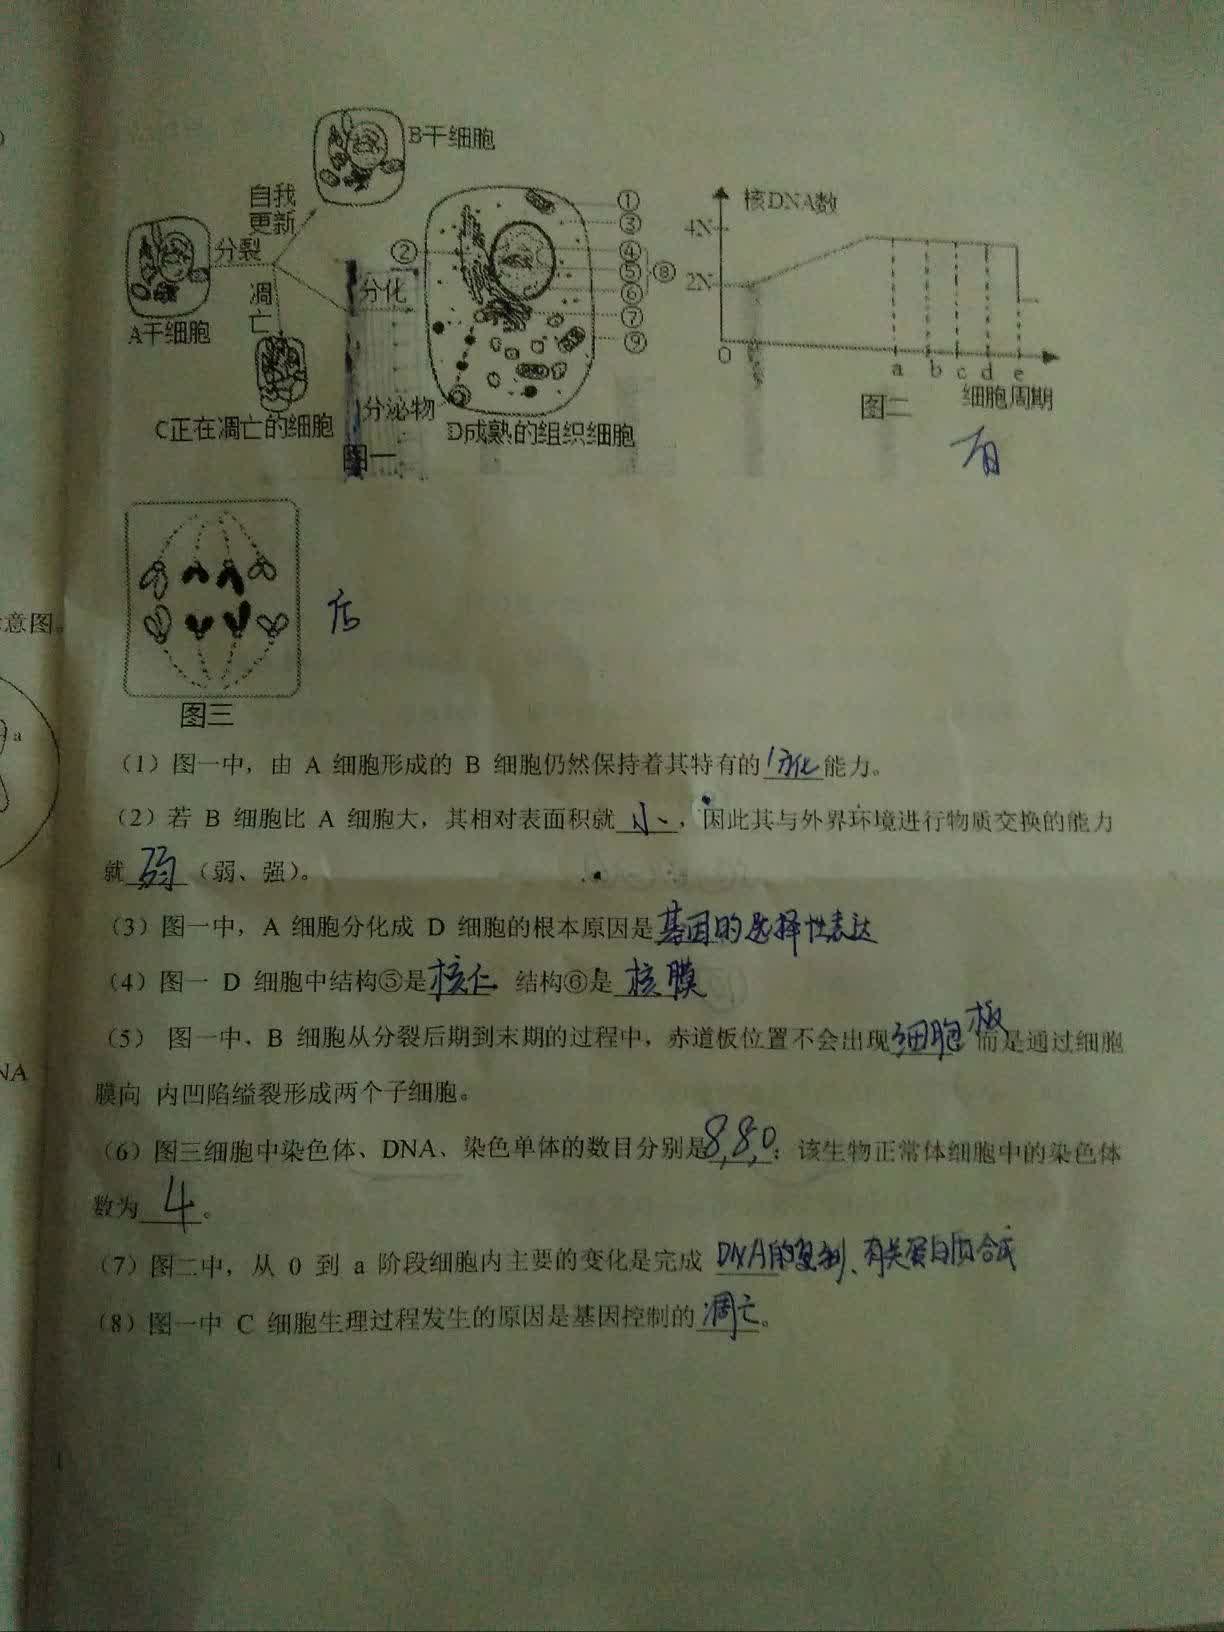 B干细胞
自我
更新
分裂
A干细胞
凋
亡
C正在凋亡的细胞
分化
分泌物
图一
D成熟的组织细胞
①
②
③
④
⑤
⑥
⑦
⑧
⑨
核DNA数
4N
2N
0
a b c d e
细胞周期
图二
有
意图。
a
后
图三
(1)图一中，由 A 细胞形成的 B 细胞仍然保持着其特有的分化能力。
(2)若 B 细胞比 A 细胞大，其相对表面积就小，因此其与外界环境进行物质交换的能力
就弱（弱、强）。
(3)图一中，A 细胞分化成 D 细胞的根本原因是基因的选择性表达
(4)图一 D 细胞中结构⑤是核仁 结构⑥是核膜
(5) 图一中，B 细胞从分裂后期到末期的过程中，赤道板位置不会出现细胞板而是通过细胞
膜向 内凹陷缢裂形成两个子细胞。
NA
(6)图三细胞中染色体、DNA、染色单体的数目分别是8,8,0；该生物正常体细胞中的染色体
数为4。
(7)图二中，从 0 到 a 阶段细胞内主要的变化是完成 DNA的复制、有关蛋白质合成
(8)图一中 C 细胞生理过程发生的原因是基因控制的凋亡。